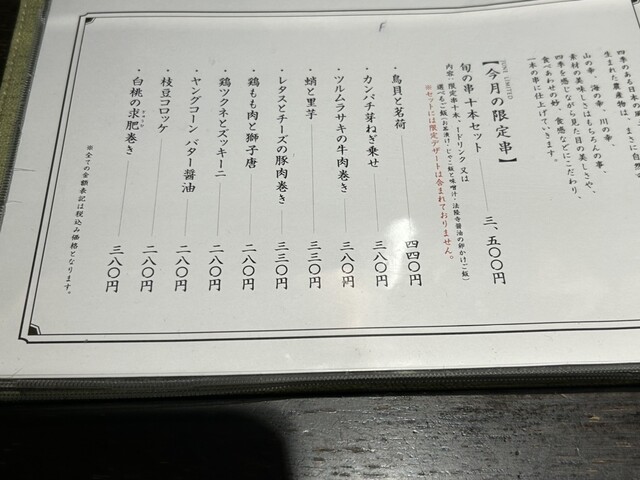 四季のある日本の
生まれた農産物は、まさに自然
山の幸、海の幸、川の幸、
素材の美味しさはもちろんの事、
四季を感じながら見た目の美しさや、
食べあわせの妙、食感などにこだわり、
一本の串に仕上げています。
【今月の限定串】
旬の串十本セット 三、五〇〇円
内容：限定串十本、1ドリンク又は
選べるご飯（お茶漬け・じゃこ飯と味噌汁・法隆寺醤油の卵かけご飯）
※セットには限定デザートは含まれておりません。
・鳥貝と茗荷 四四〇円
・カンパチ芽ねぎ乗せ 三八〇円
・ツルムラサキの牛肉巻き 三八〇円
・蛸と里芋 三三〇円
・レタスとチーズの豚肉巻き 三三〇円
・鶏もも肉と獅子唐 二八〇円
・鶏ツクネとズッキーニ 二八〇円
・ヤングコーン バター醤油 二八〇円
・枝豆コロッケ 二八〇円
・白桃の求肥巻き 三八〇円
※全ての金額表記は税込み価格となります。